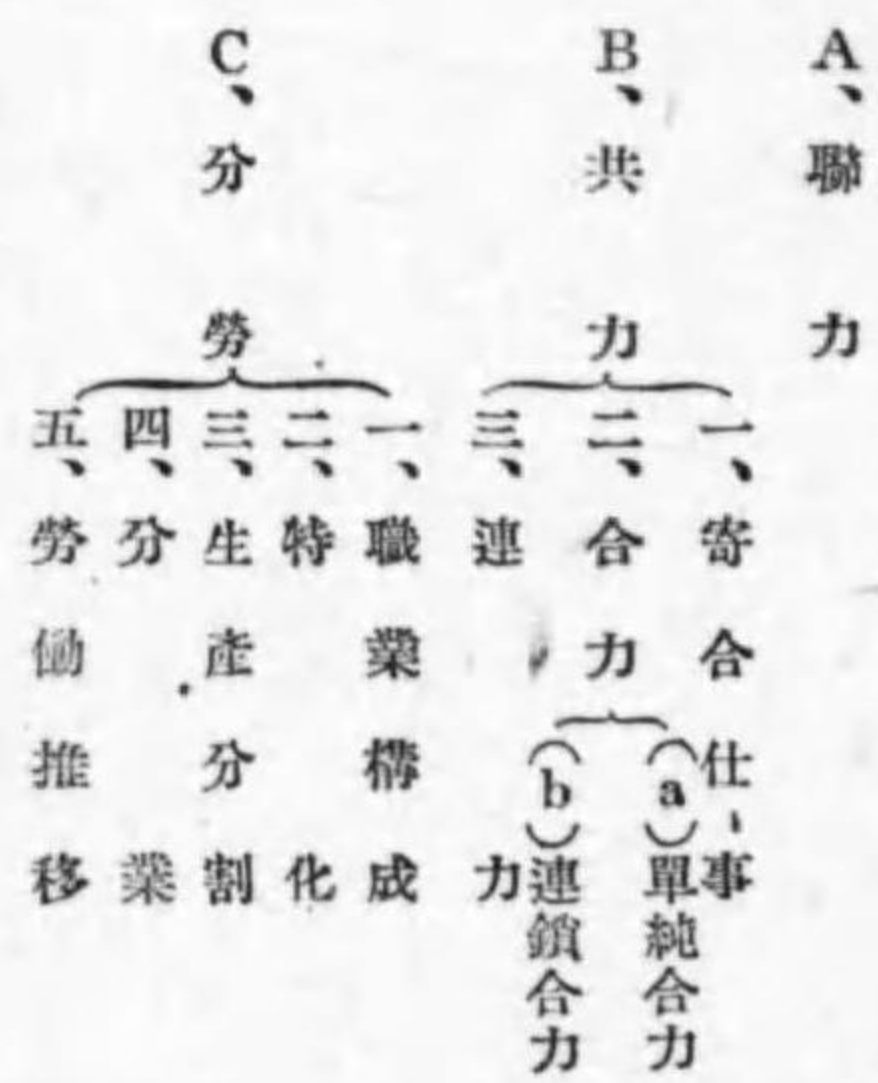 A、聯力
B、共力
一、寄合仕事
二、合力
(a)單純合力
(b)連鎖合力
三、連力
C、分勞
一、職業構成
二、特化
三、生產分割
四、分業
五、勞働推移